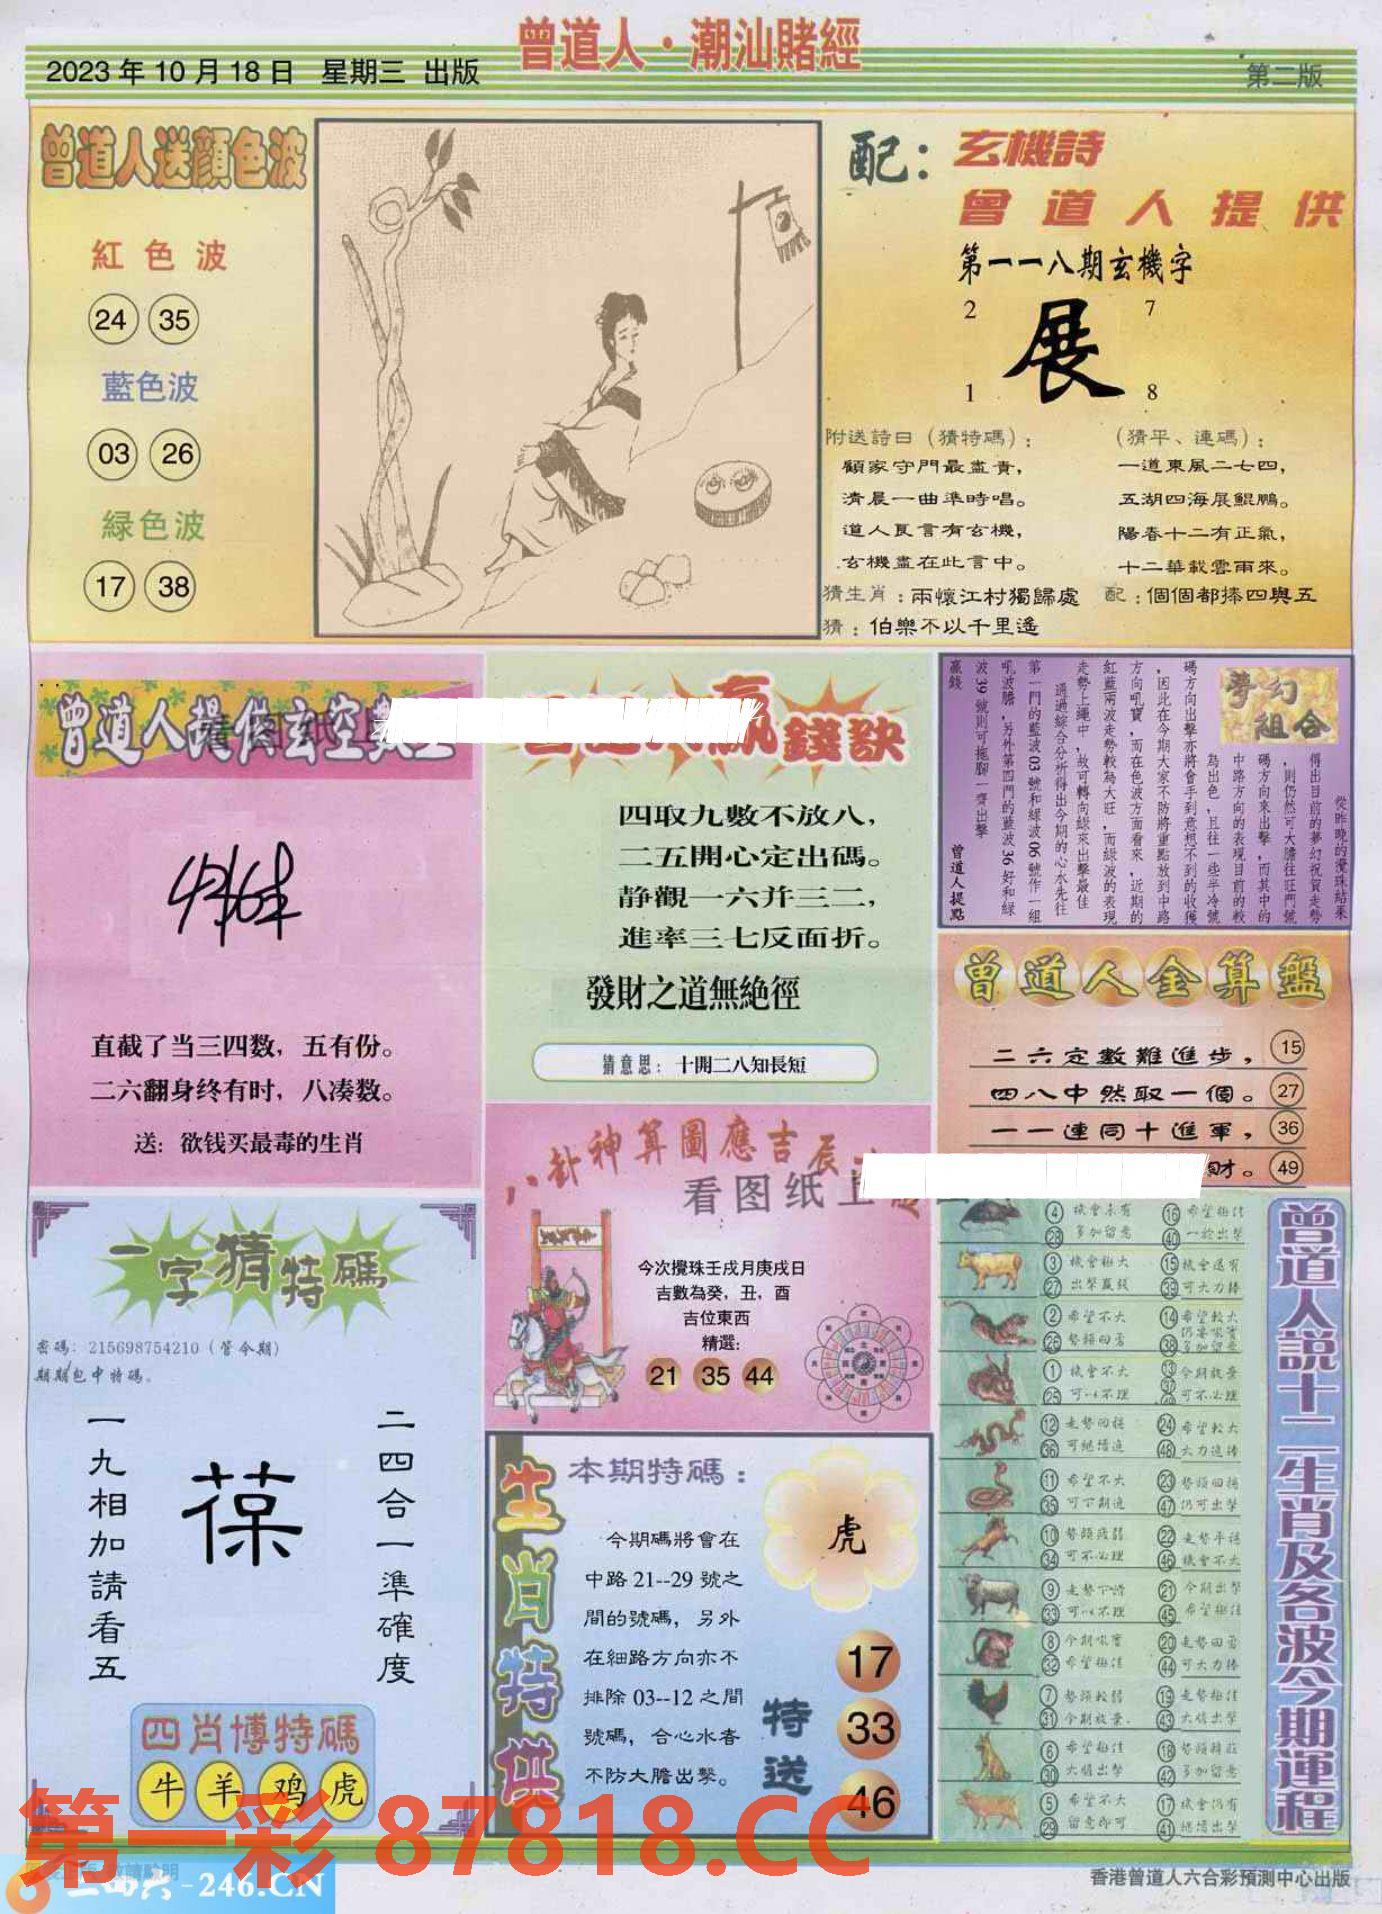 曾道人·潮汕賭經
2023年10月18日 星期三 出版
第二版
曾道人送顔色波
紅色波
24 35
藍色波
03 26
緑色波
17 38
配：玄機詩
曾道人提供
第一一八期玄機字
2 7
展
1 8
附送詩曰（猜特碼）：
顧家守門最盡責，
清晨一曲準時唱。
道人良言有玄機，
玄機盡在此言中。
猜生肖：兩懷江村獨歸處
猜：伯樂不以千里遙
（猜平、連碼）：
一道東風二七四，
五湖四海展鯤鵬。
陽春十二有正氣，
十二華載雲雨來。
配：個個都捧四與五
曾道人提供玄空數
直截了当三四数，五有份。
二六翻身终有时，八凑数。
送：欲钱买最毒的生肖
贏錢訣
四取九數不放八，
二五開心定出碼。
静觀一六并三二，
進率三七反面折。
發財之道無絶徑
猜意思：十開二八知長短
夢幻組合
從昨晚的攪珠結果
得出目前的夢幻祝賀走勢
，則仍然可大膽往旺門號
碼方向來出擊，而其中的
中路方向的表現目前的較
為出色，且往一些半冷號
碼方向出擊亦將會手到意想不到的收獲
，因此在今期大家不防將重點放到中路
方向吼寶，而在色波方面看來，近期的
紅藍兩波走勢較為大旺，而綠波的表現
走勢上繩中，故可轉向綠來出擊最佳
通過綜合分析得出今期的心水先往
第一門的藍波03號和綠波06號作一組
吼波膽，另外第四門的藍波36好和綠
波39號則可拖腳一齊出擊
贏錢
曾道人提點
曾道人金算盤
二六定數難進步，15
四八中然取一個。27
一一連同十進軍，36
財。49
八卦神算圖應吉辰
看图纸上
今次攪珠壬戌月庚戌日
吉數為癸，丑，酉
吉位東西
精選：
21 35 44
一字猜特碼
密碼：215698754210（管今期）
期期包中特碼。
二四合一準確度
葆
一九相加請看五
四肖博特碼
牛 羊 鸡 虎
生肖特供
本期特碼：
虎
今期碼將會在
中路21--29號之
間的號碼，另外
在細路方向亦不
排除03--12之間
號碼，合心水者
不防大膽出擊。
特送
17
33
46
曾道人説十二生肖及各波今期運程
4 機會未有 16 希望極佳
28 多加留意 40 一於出擊
3 機會極大 15 機會還有
27 出擊贏錢 39 可大力捧
2 希望不大 14 希望較大
26 勢頭回勇 38
1 機會不大 13 今期放棄
25 可以不理 可不必理
12 走勢回穩 24 希望較大
36 可繼續追 48 大力追捧
11 希望不大 23 勢頭回穩
35 可下期追 47 仍可出擊
10 勢頭疲弱 22 走勢平穩
34 可不必理 46 機會不大
9 走勢下滑 21 今期出擊
33 可以不理 45 希望極佳
8 今期吼寶 20 走勢回勇
32 希望極佳 44 可大力捧
7 勢頭較弱 19 走勢極佳
31 今期放棄 43 大膽出擊
6 希望極佳 18 勢頭
30 大膽出擊 42 多加留意
5 希望不大 17 機會仍有
29 留意即可 41 繼續出擊
第一彩 87818.CC
二四六-246.CN
香港曾道人六合彩預測中心出版